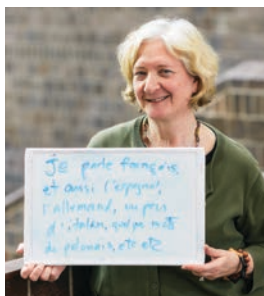 je parle français,
et aussi l'espagnol,
l'allemand, un peu
d'italien, quelques mots
de polonais, etc etc